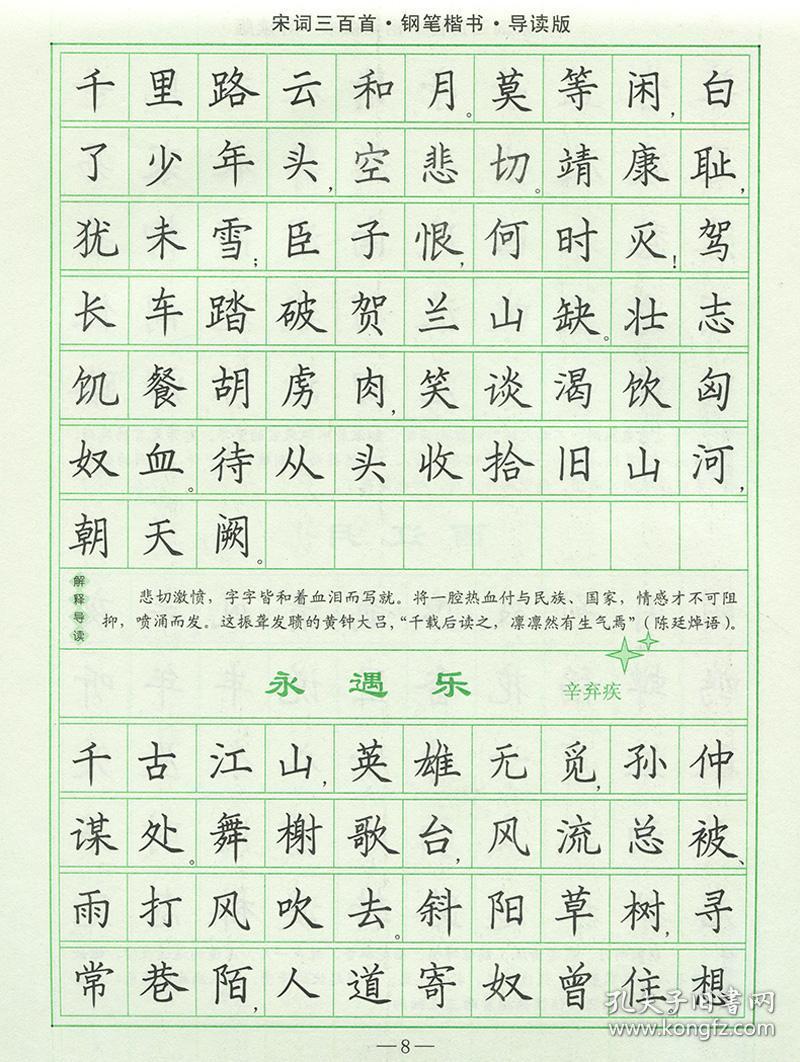 宋词三百首·钢笔楷书·导读版
千里路云和月。莫等闲,白
了少年头,空悲切。靖康耻,
犹未雪;臣子恨,何时灭!驾
长车踏破贺兰山缺。壮志
饥餐胡虏肉,笑谈渴饮匈
奴血。待从头收拾旧山河,
朝天阙。
解释导读
悲切激愤，字字皆和着血泪而写就。将一腔热血付与民族、国家，情感才不可阻
抑，喷涌而发。这振聋发聩的黄钟大吕，“千载后读之，凛凛然有生气焉”（陈廷焯语）。
永遇乐
辛弃疾
千古江山,英雄无觅,孙仲
谋处。舞榭歌台,风流总被、
雨打风吹去。斜阳草树,寻
常巷陌,人道寄奴曾住。想
孔夫子旧书网
www.kongfz.com
—8—